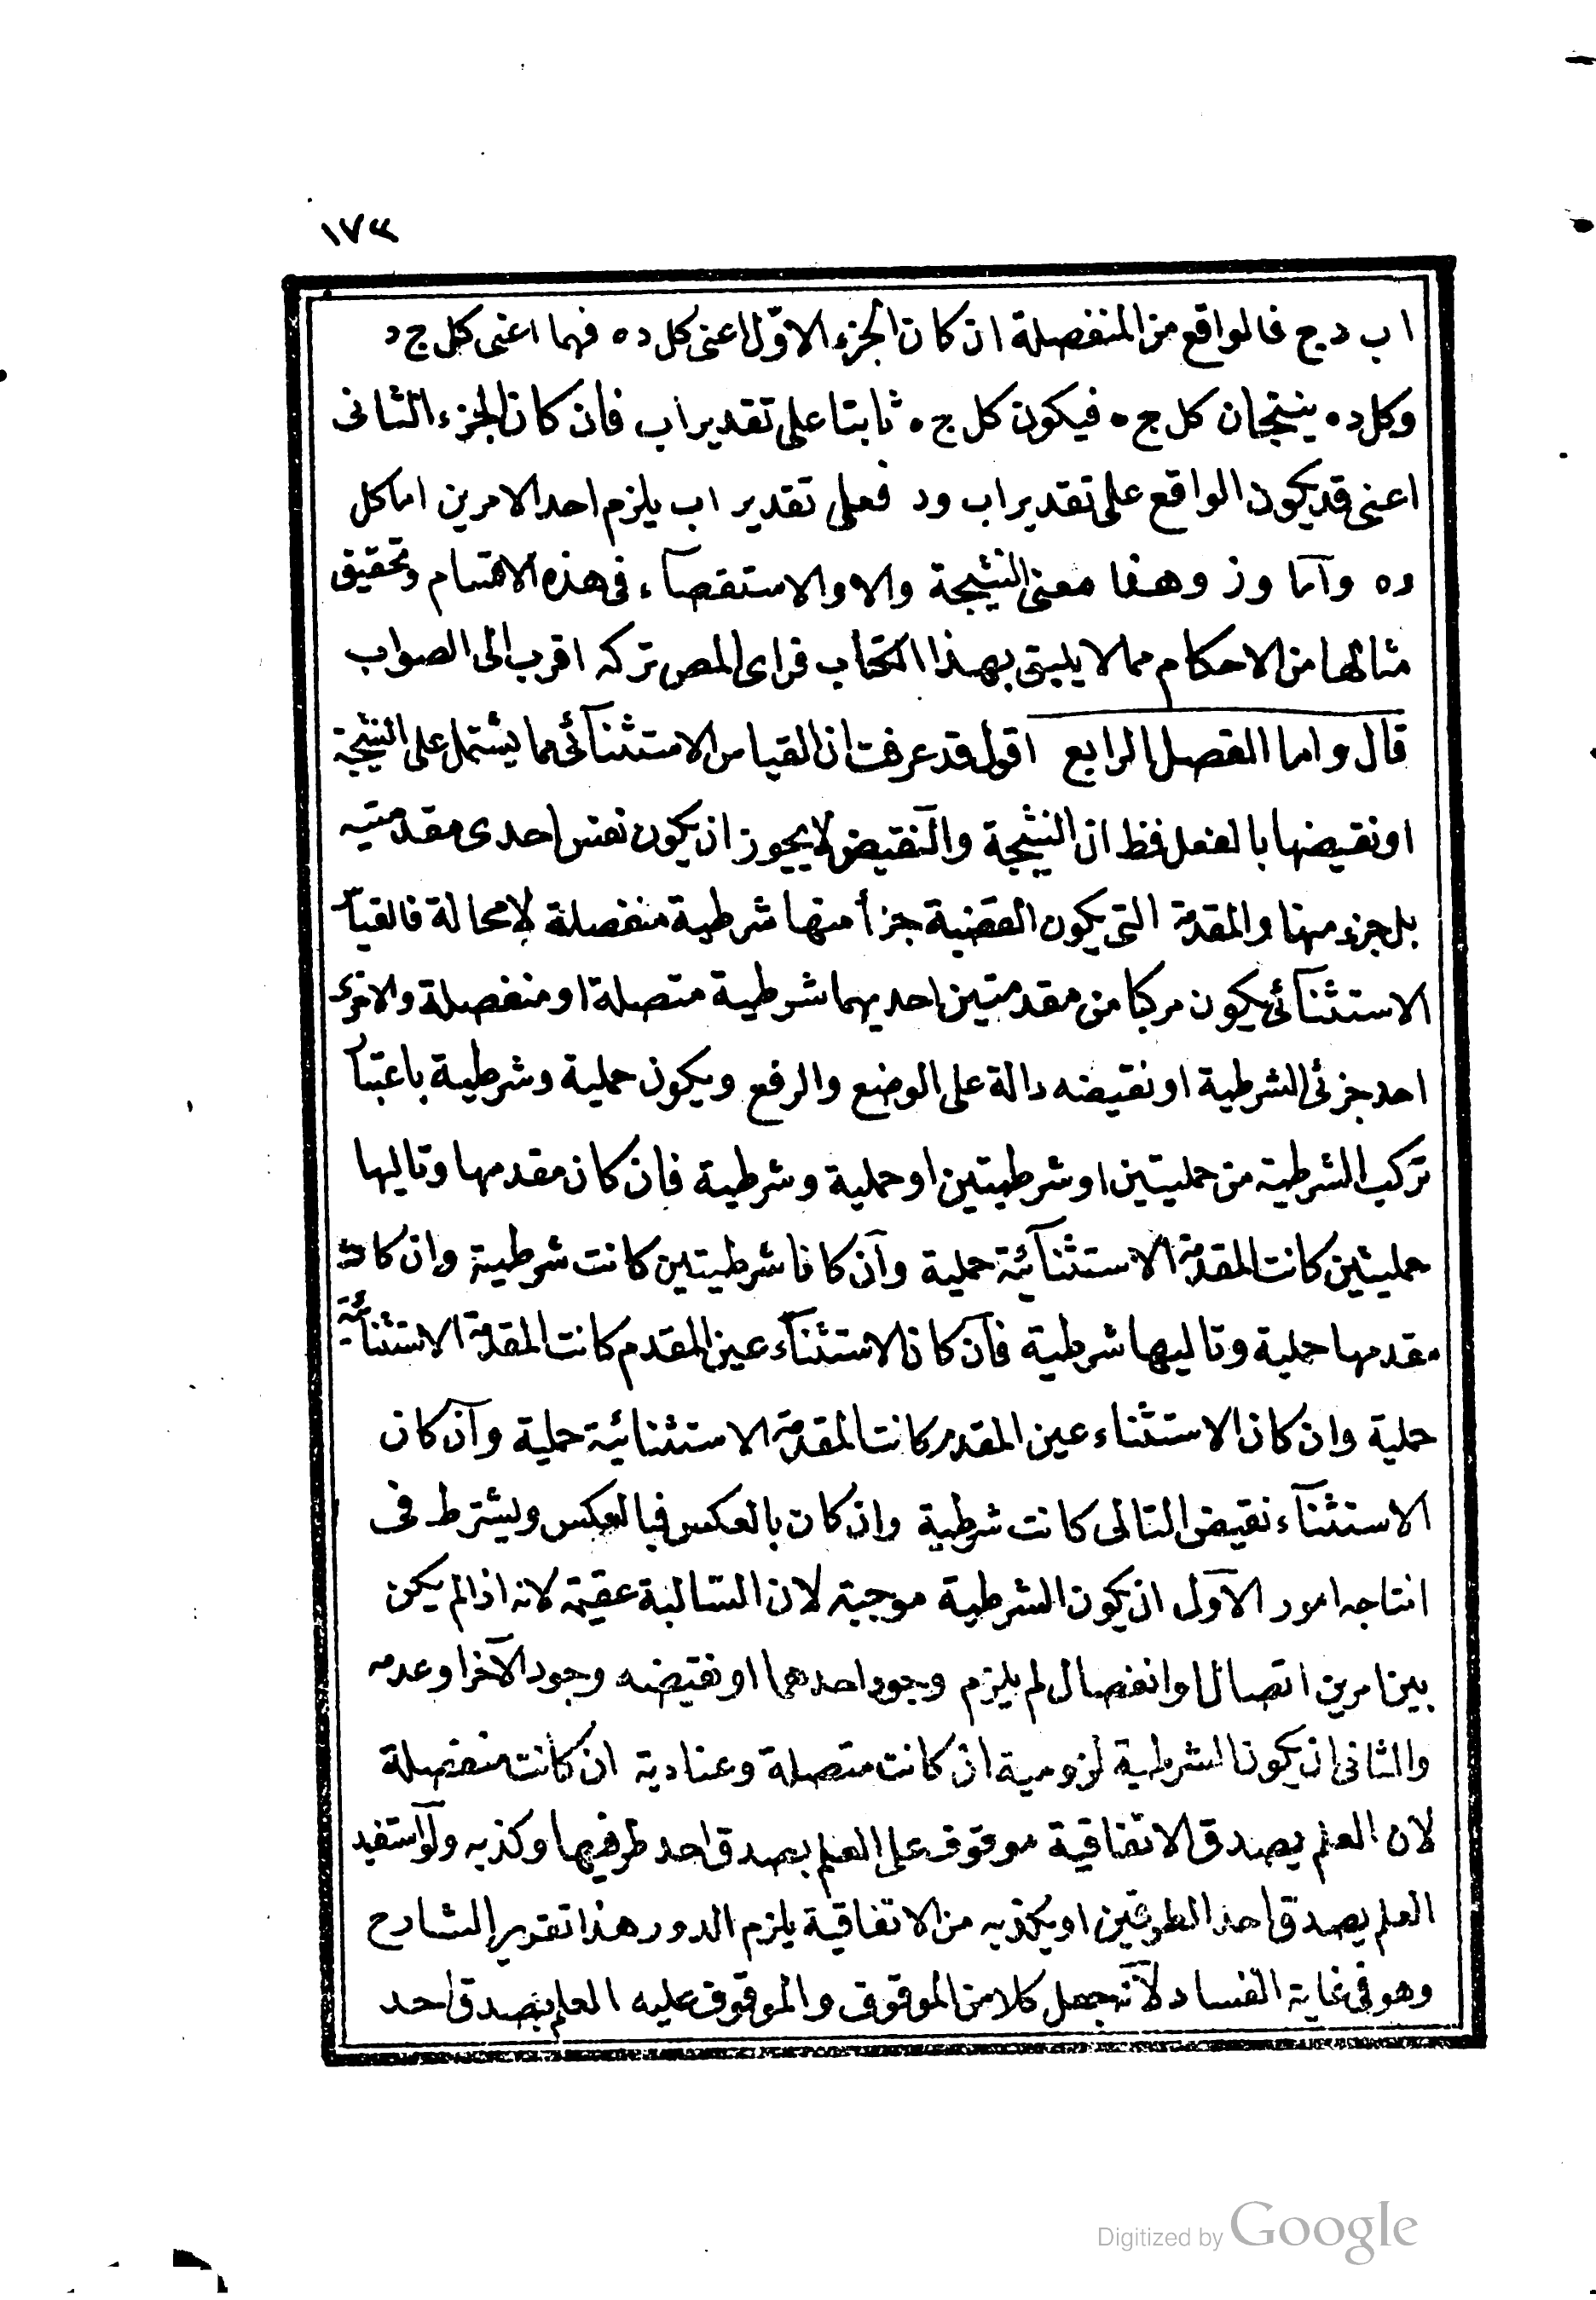 ١٧٣
ا ب د ج فالواقع من المنفصلة ان كان الجزء الاوّل اعنى كل د ه فهما اعنى كل ج د
وكل د ه ينتجان كل ج ه فيكون كل ج ه ثابتا على تقدير ا ب فان كان الجزء الثانى
اعنى قد يكون الواقع على تقدير ا ب ود فعلى تقدير ا ب يلزم احد الامرين اما كل
د ه وآما وز وهفا معنى النتيجة والا والاستقصآء فى هذه الاقسام وتحقيق
مثالها من الاحكام مما لا يليق بهذا الكتاب فراى المص تركه اقرب الى الصواب
قال واما الفصل الرابع اقول قد عرفت ان القياس الاستثنآئى مما يشتمل على النتيجة
او نقيضها بالفعل فظ ان النتيجة والنقيض لا يجوز ان يكون نفس احدى مقدمتيه
بل جزء منها والمقدمة التى يكون القضية جزأ منها شرطية منفصلة لا محالة فالقيا
الاستثنآئى يكون مركبا من مقدمتين احديهما شرطية متصلة او منفصلة والاخرى
احد جزئى الشرطية او نقيضه دالة على الوضع والرفع ويكون حملية وشرطية باعتبا
تركب الشرطية من حمليتين او شرطيتين او حملية وشرطية فان كان مقدمها وتاليها
حمليتين كانت المقدمة الاستثنآئية حملية وآن كانا شرطيتين كانت شرطية وان كان
مقدمها حملية وتاليها شرطية فآن كان الاستثنآء عين المقدم كانت المقدمة الاستثنآئية
حملية وان كان الاستثناء عين المقدم كانت المقدمة الاستثنائية حملية وآن كان
الاستثنآء نقيض التالى كانت شرطية وان كان بالعكس فبالعكس ويشترط فى
انتاجه امور الآول ان يكون الشرطية موجبة لان السالبة عقيمة لانه اذا لم يكن
بين امرين اتصال او انفصال لم يلزم وجود احدهما او نقيضه وجود الآخر او عدمه
والثانى ان يكون الشرطية لزومية ان كانت متصلة وعنادية ان كانت منفصلة
لان العلم بصدق الاتفاقية موقوف على العلم بصدق احد طرفيها وكذبه ولو استفيد
العلم بصدق احد الطرفين او بكذبه من الاتفاقية يلزم الدور هذا تقرير الشارح
وهو فى غاية الفساد لآنه جعل كلا من الموقوف والموقوف عليه العلم بصدق احد
Digitized by Google